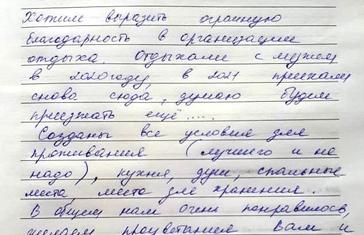 Хотим выразить огромную
благодарность в организации
отдыха. Отдыхали с мужем
в 2020 году, в 2021 приехали
снова сюда, думаю будем
приезжать ещё....
Созданы все условия для
проживания (лучшего и не
надо), кухня, душ, спальные
места, место для хранения.
В общем нам очень понравилось,
желаем процветания Вам и